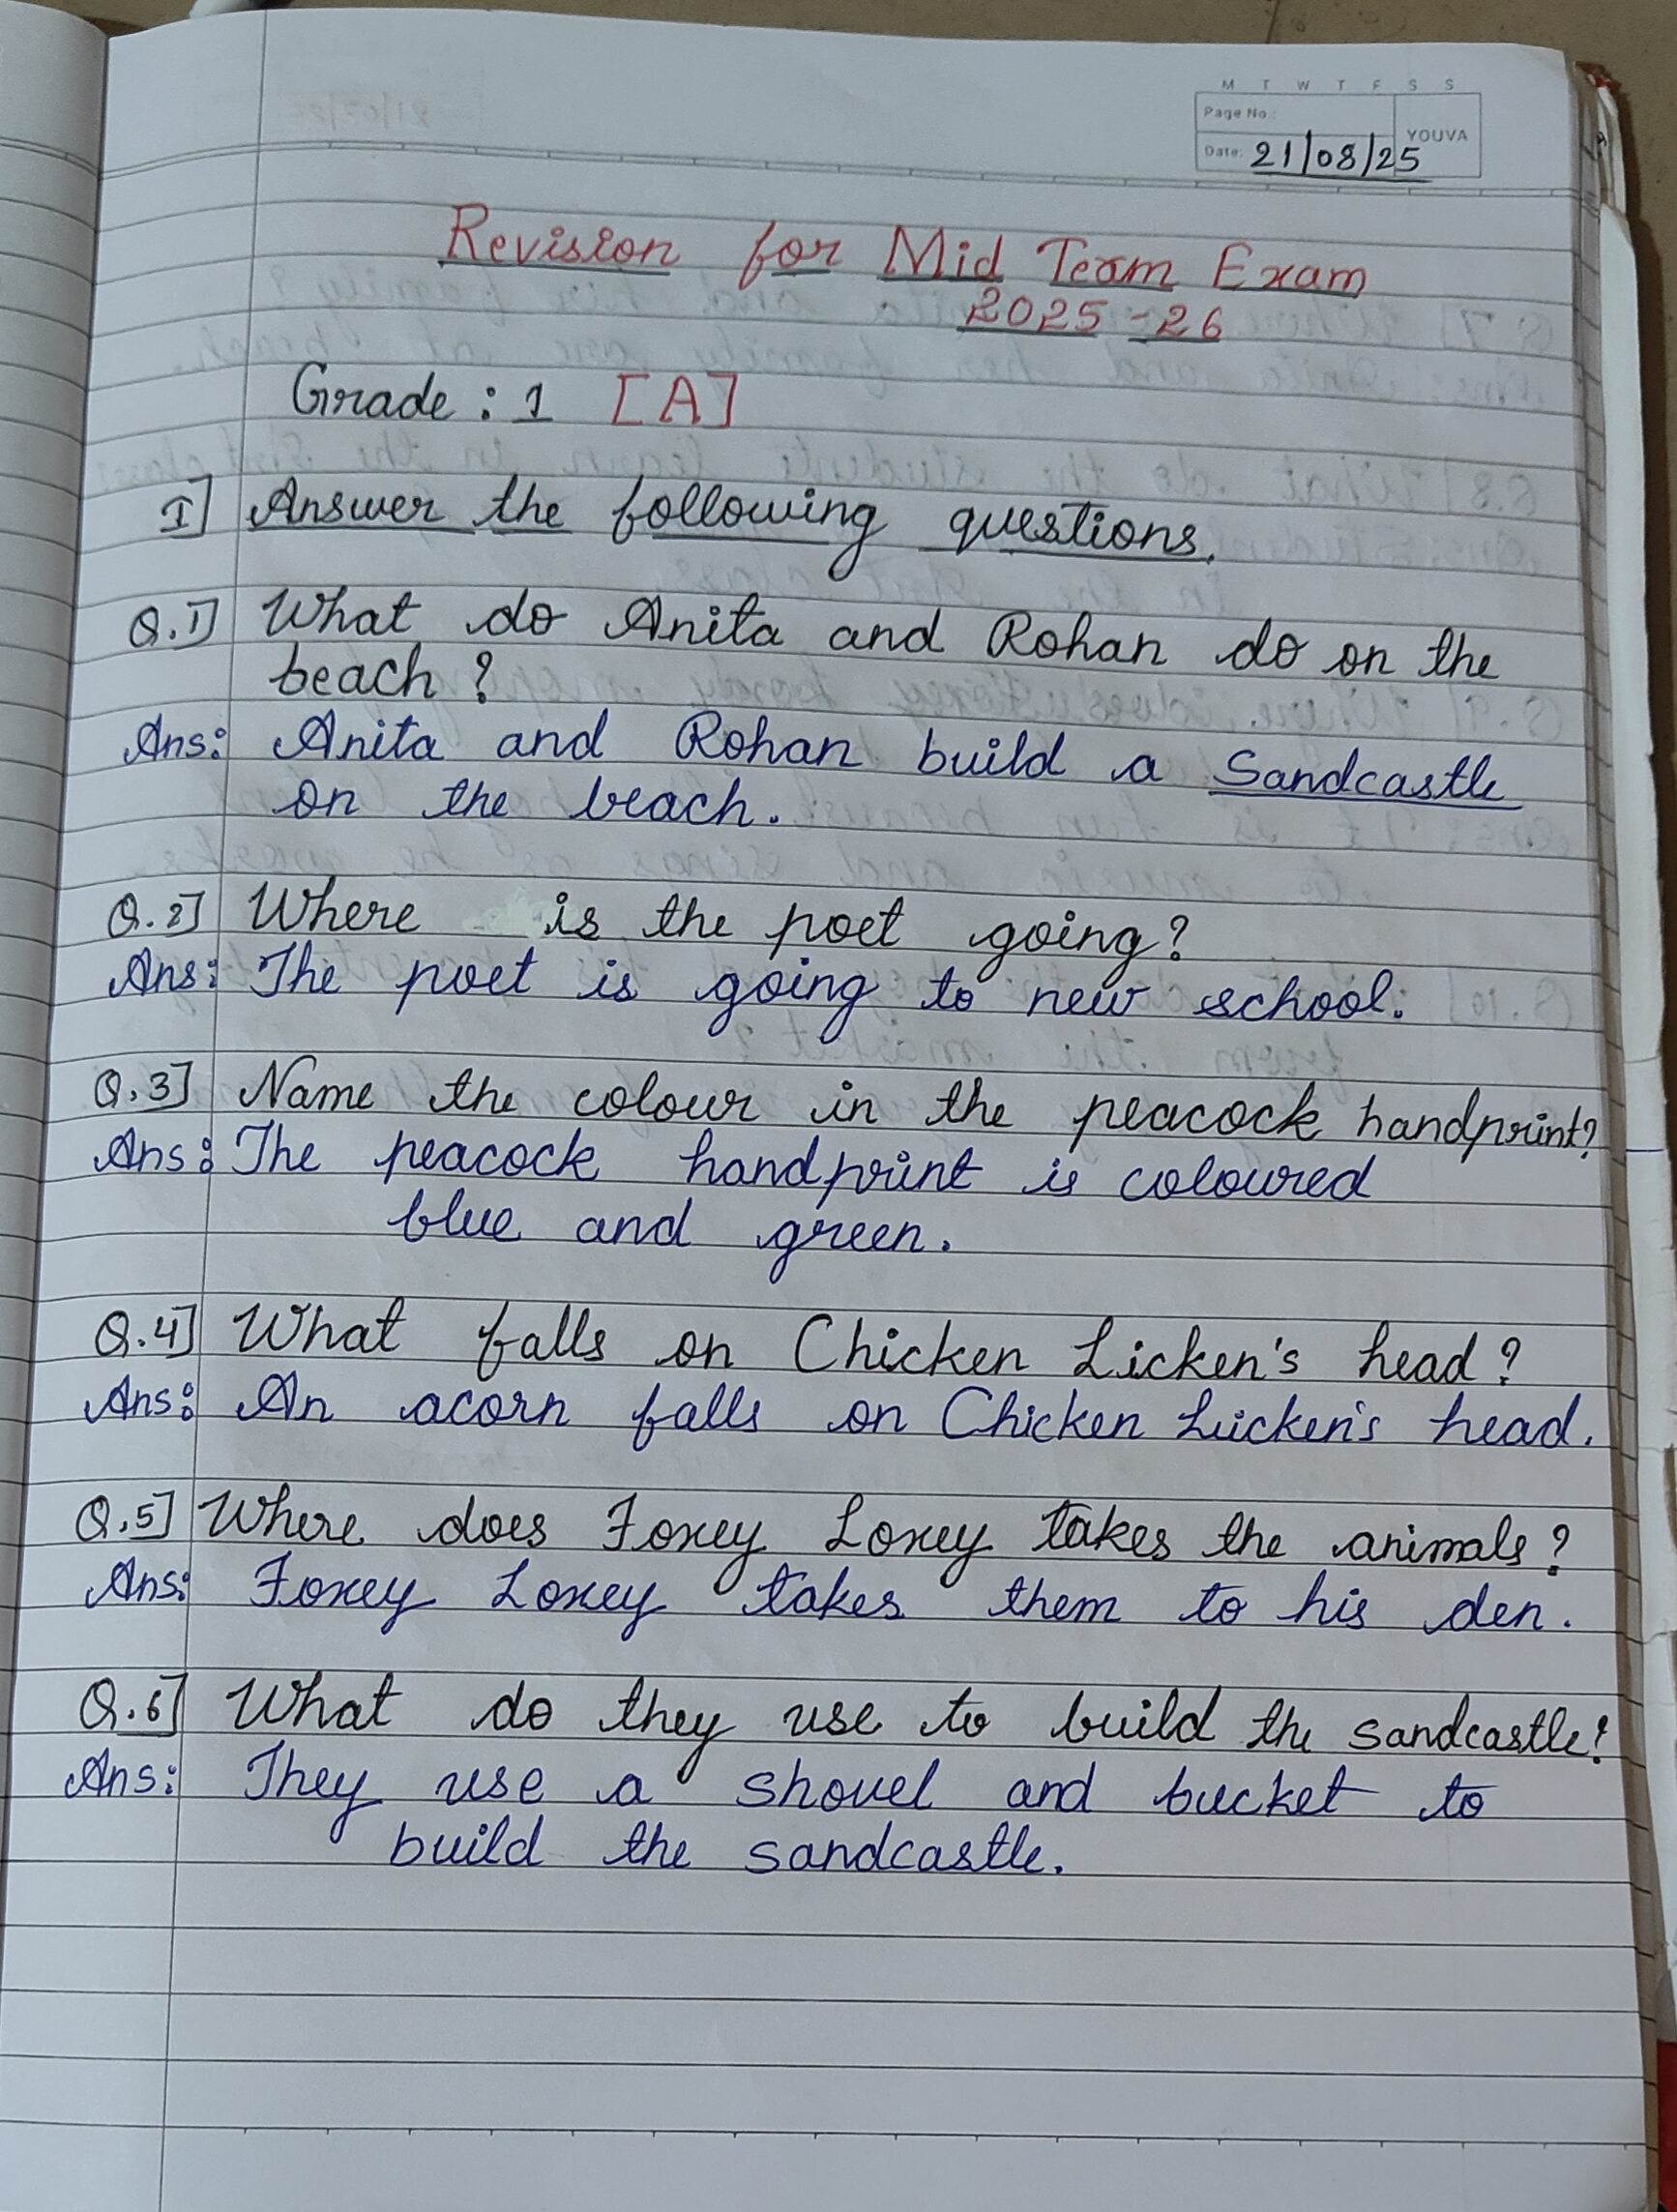 M T W T F S S
Page No.:
YOUVA
Date: 21/08/25
Revision for Mid Team Exam
2025-26
Grade : 1 [A]
I] Answer the following questions.
Q.1] What do Anita and Rohan do on the
beach ?
Ans: Anita and Rohan build a Sandcastle
on the beach.
Q.2] Where is the poet going?
Ans: The poet is going to new school.
Q.3] Name the colour in the peacock handprint?
Ans: The peacock handprint is coloured
blue and green.
Q.4] What falls on Chicken Licken's head ?
Ans: An acorn falls on Chicken Licken's head.
Q.5] Where does Foxey Loxey takes the animals ?
Ans: Foxey Loxey takes them to his den.
Q.6] What do they use to build the sandcastle?
Ans: They use a shovel and bucket to
build the sandcastle.